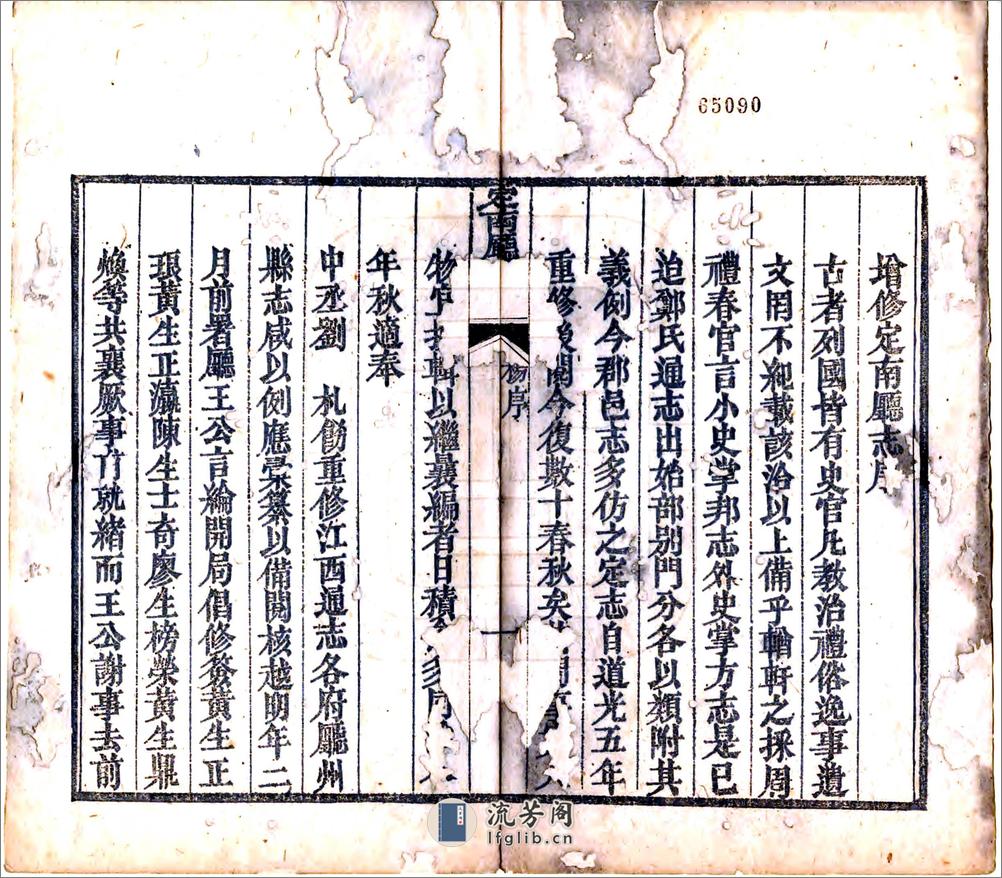 65090
增修定南廳志序
古者列國皆有史官凡教治禮俗逸事遺
文罔不紀載該洽以上備乎輶軒之採周
禮春官言小史掌邦志外史掌方志是已
迨鄭氏通志出始部別門分各以類附其
義例今郡邑志多仿之定志自道光五年
重修後閱今復數十春秋矣
定南廳
楊序
一
物 輯以繼曩編者日積
年秋適奉
中丞劉 札飭重修江西通志各府廳州
縣志咸以例應彙纂以備閱核越明年二
月前署廳王公言綸開局倡修發黃生正
琅黃生正瀛陳生士奇廖生榜榮黃生鼎
煥等共襄厥事甫就緒而王公謝事去前
流芳阁
lfglib.cn